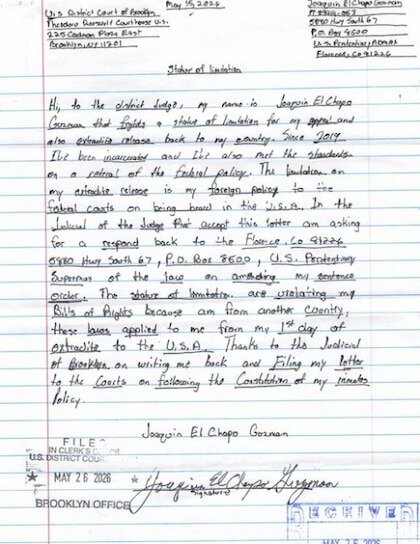 May 15, 2026
U.S. District Court of Brooklyn
Theodore Roosevelt Courthouse U.S.
225 Cadman Plaza East
Brooklyn, NY 11201
Joaquin El Chapo Guzman
5880 Hwy South 67
P.O. Box 8500
U.S. Penitentiary, ADMAX
Florence, Co 81226
Statue of limitation
Hi, to the district Judge, my name is Joaquin El Chapo
Guzman that a statue of limitation for my appeal and
also extradite release back to my country. Since 2019
I've been incarcerated and I've also met the standards
on a retrial of the federal policy. The limitation on
my extradite release is my foreign policy to the
federal courts on being heard in the U.S.A. In the
Judicial of the Judge that accept this letter am asking
for a respond back to the Florence, Co 81226
5880 Hwy South 67, P.O. Box 8500, U.S. Penitentiary
of the law on amending my sentence
order. The statue of limitation are violating my
Bills of Rights because am from another country,
these laws applied to me from my 1st day of
extradite to the U.S.A. Thanks to the Judicial
of Brooklyn on writing me back and Filing my letter
to the Courts on following the Constitution of my inmates
Policy.
Joaquin El Chapo Guzman
FILE
IN CLERK'S
U.S. DISTRICT COU
★ MAY 26 2026
BROOKLYN OFFICE
Joaquin El Chapo Guzman
Signature
RECEIVED
MAY 26 2026